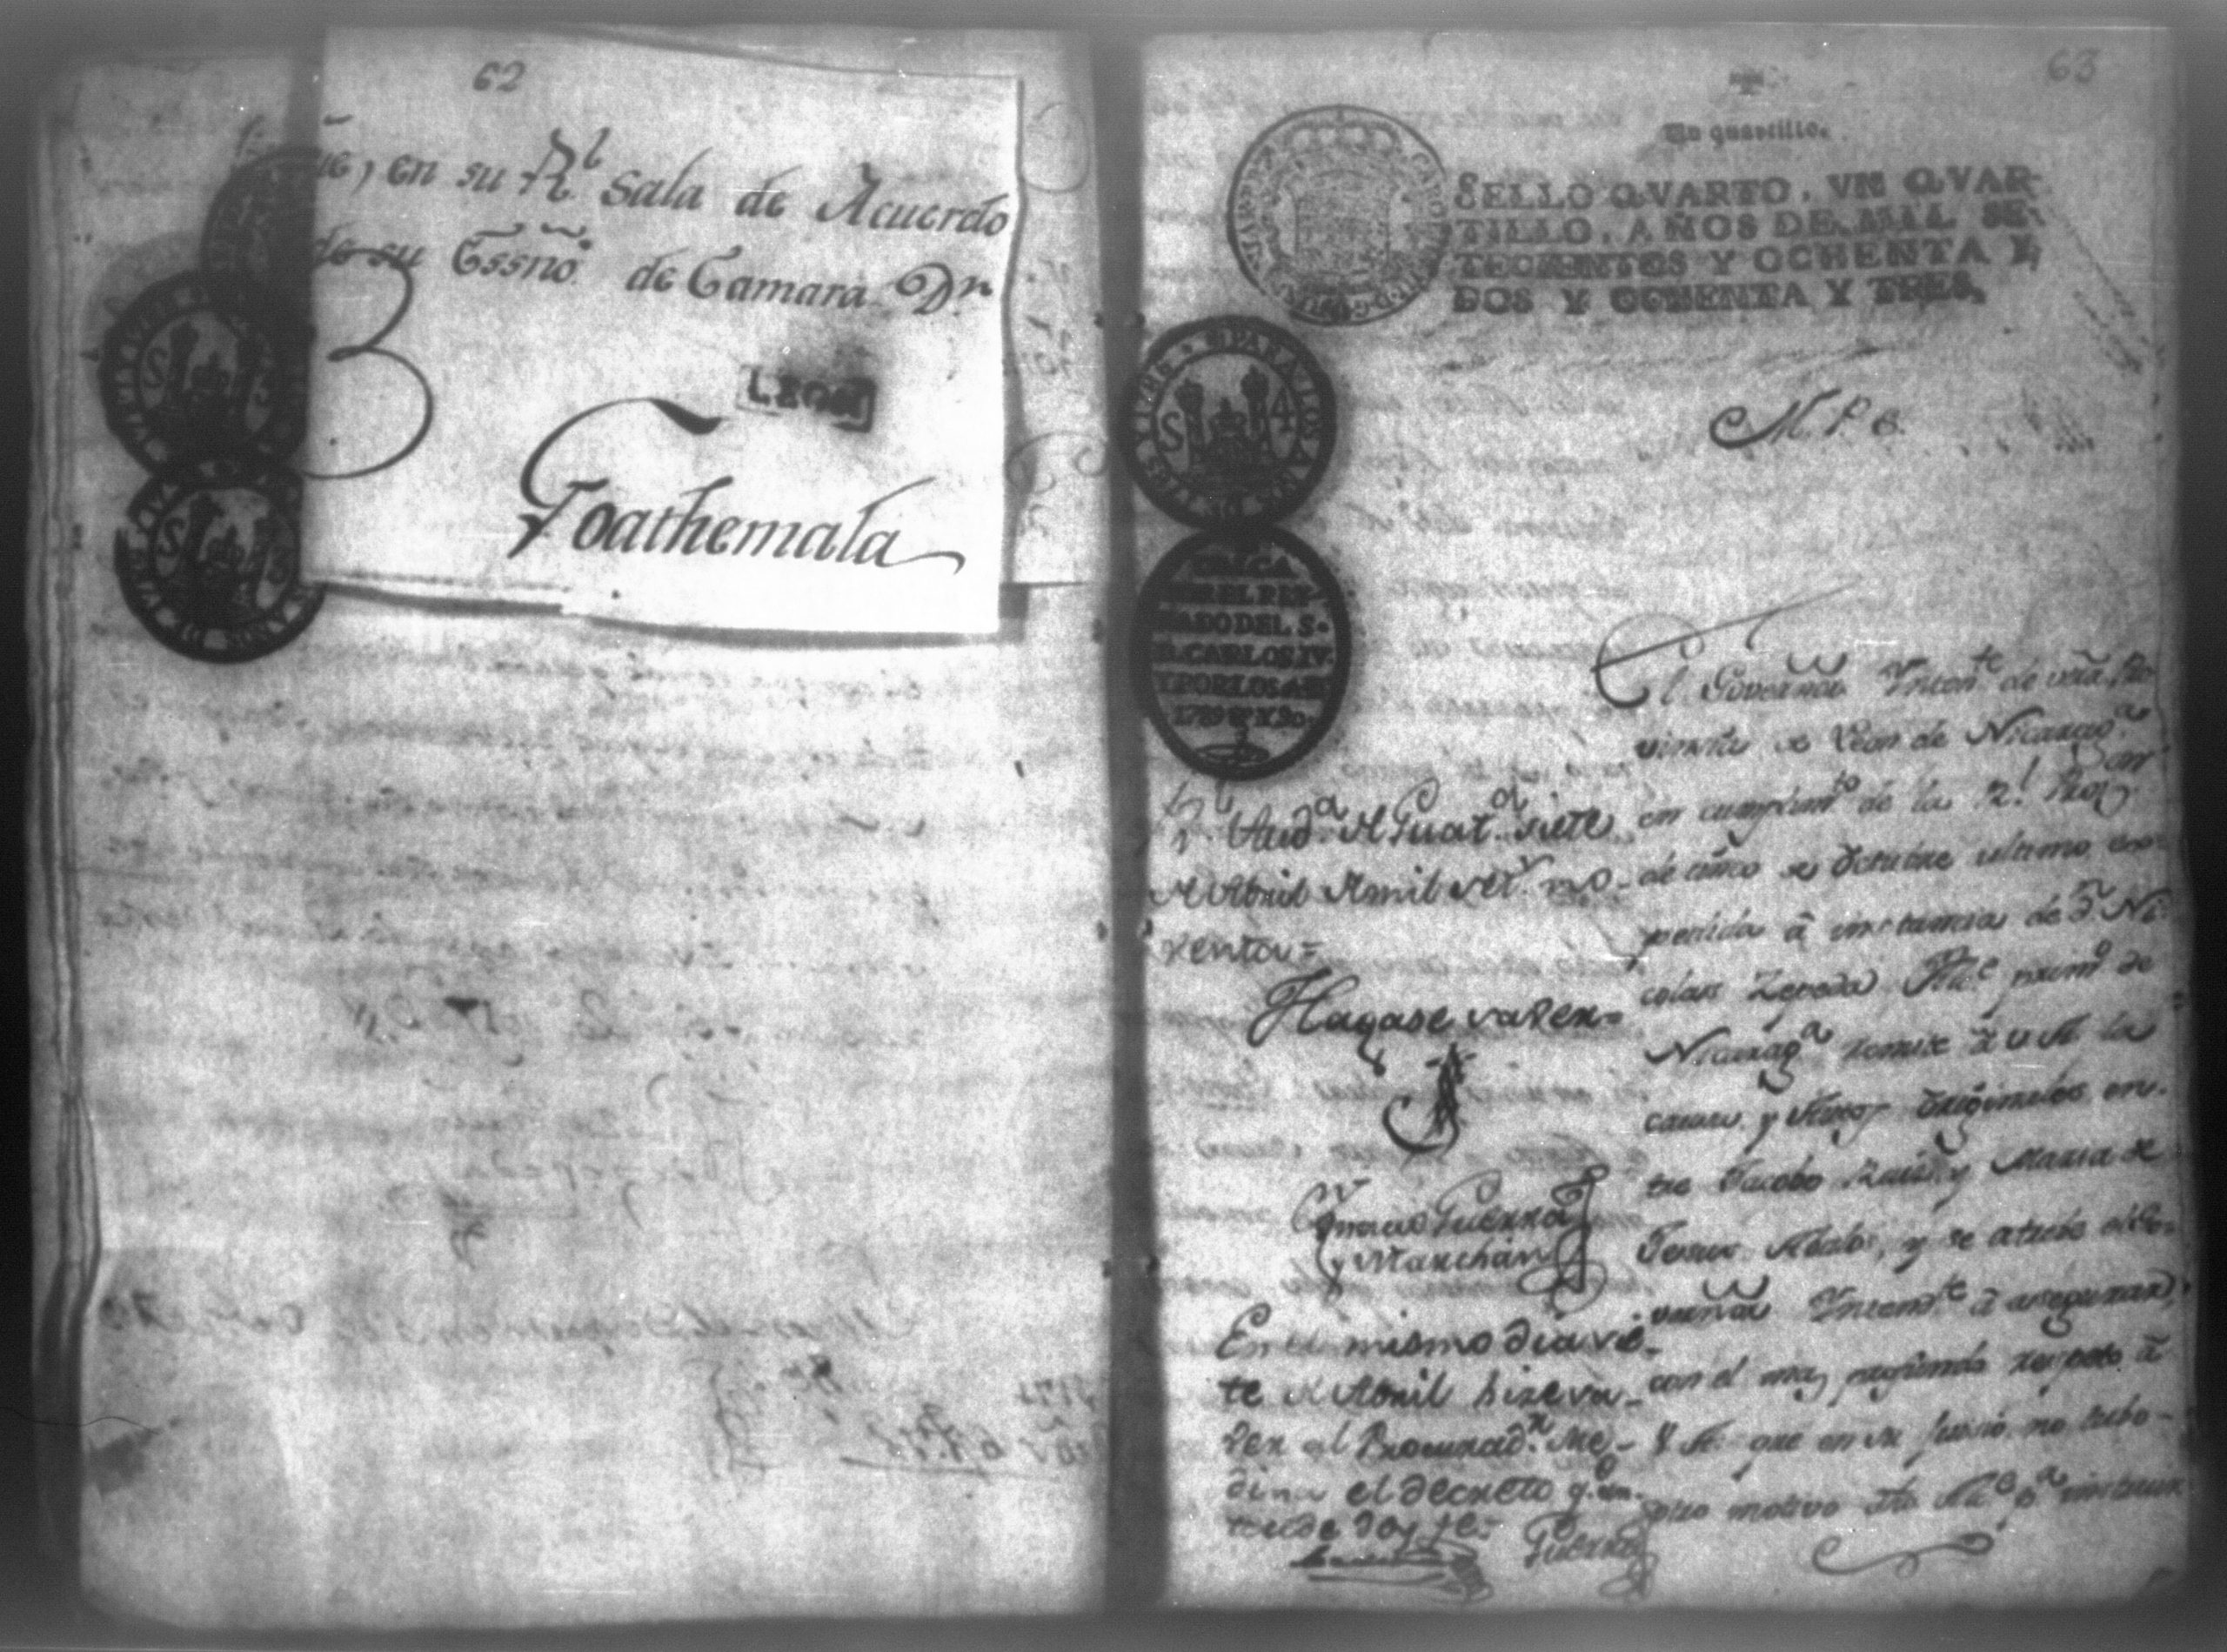 62
en su Rl Sala de Acuerdo
de su Essño de Camara Dn
LEON
Goathemala
63
Un quartillo.
SELLO QVARTO, VN QVAR-
TILLO, AÑOS DE MIL SE-
TECIENTOS Y OCHENTA Y
DOS Y OCHENTA Y TRES,
PARA LOS AÑOS DE
S 4
VALGA
POR EL REY-
NADO DEL S.
D. CARLOS IV.
Y POR LOS AS.
1789 Y 90.
M. P. S.
El Governaor Yntente de vña Pro
vincia de Leon de Nicaraga
en cumplimto de la Rl Provon
de cinco de Octubre ultimo ex-
pedida â instancia de Dn Ni-
colas Zepeda Alce primo de
Nicaraga remite â V A la
causa y Autos originales en-
tre Jacobo Ruiz y Maria de
Jesus Abalos, y se atrebe el Go-
vernaor Yntendte â asegurar,
con el mas profundo respeto â
V A que en su juicio no tubo
otro motivo dho Alce pa instruir
Rl Auda de Guata siete
de Abril de mil setv no-
venta=
Hagase saver=
Ygnacio Guerra
y Marchan
En el mismo dia sie-
te de Abril hize sa-
ver al Procuradr Me-
dina el decreto qe an-
tecede doy fe=
Medina
Guerra